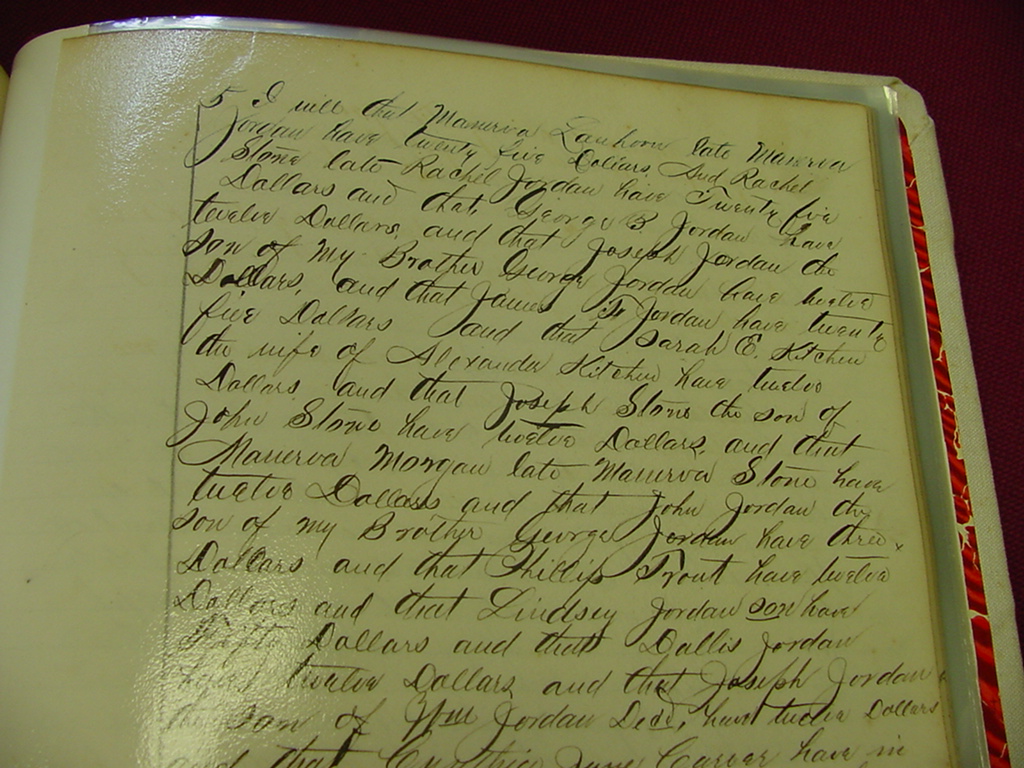 5 I will that Manerva Lanhorn late Manerva
Jordan have twenty five Dollars, And Rachel
Stone late Rachel Jordan have Twenty five
Dollars and that George B Jordan have
twelve Dollars, and that Joseph Jordan the
son of my Brother George Jordan have twelve
Dollars, and that James T. Jordan have twenty
five Dollars and that Sarah E. Kitchen
the wife of Alexander Kitchen have twelve
Dollars and that Joseph Stone the son of
John Stone have twelve Dollars, and that
Manerva Morgan late Manerva Stone have
twelve Dollars and that John Jordan the
son of my Brother George Jordan have three
Dollars and that Phillip Trout have twelve
Dollars and that Lindsey Jordan son have
Fifty Dollars and that Dallis Jordan
have twelve Dollars and that Joseph Jordan
the son of Wm Jordan Decd, have twelve Dollars
and that Jane Carver have in